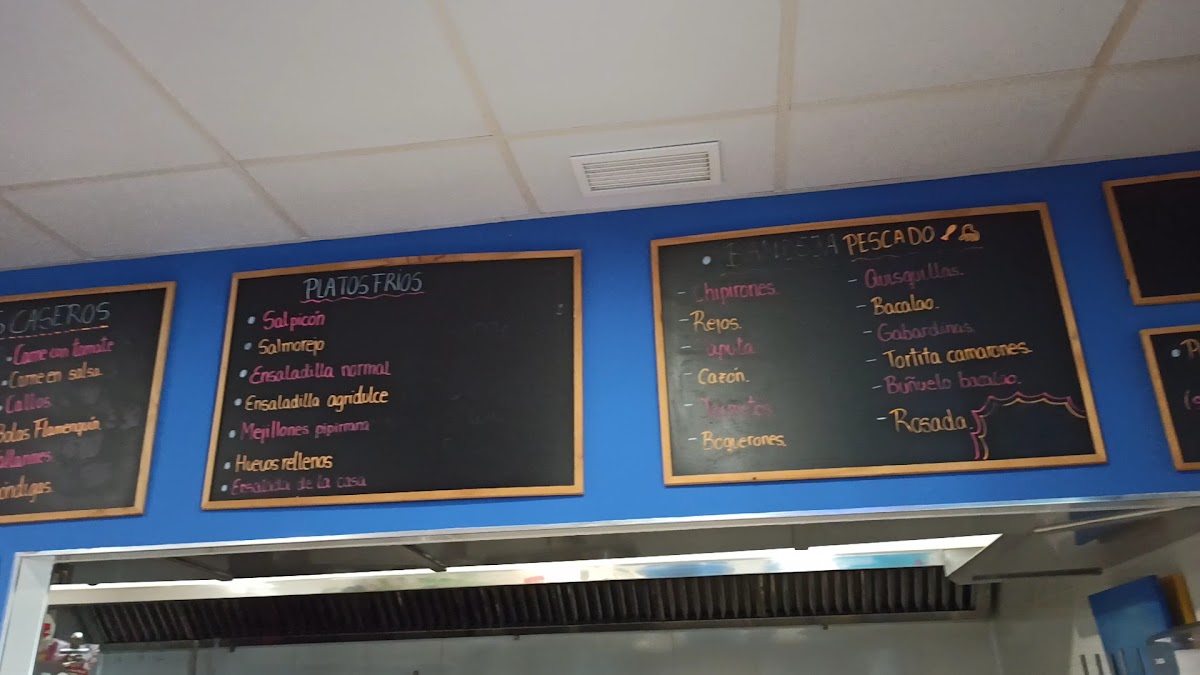 CASEROS
Carne con tomate
Carne en salsa.
Callos
Bolas Flamenquín.
PLATOS FRÍOS
Salpicón
Salmorejo
Ensaladilla normal
Ensaladilla agridulce
Mejillones pipirrana
Huevos rellenos
Ensalada de la casa
PESCADO
- Chipirones.
- Rejos.
- Cazón.
- Boquerones.
- Quisquillas.
- Bacalao.
- Gabardinas.
- Tortita camarones.
- Buñuelo bacalao.
- Rosada.